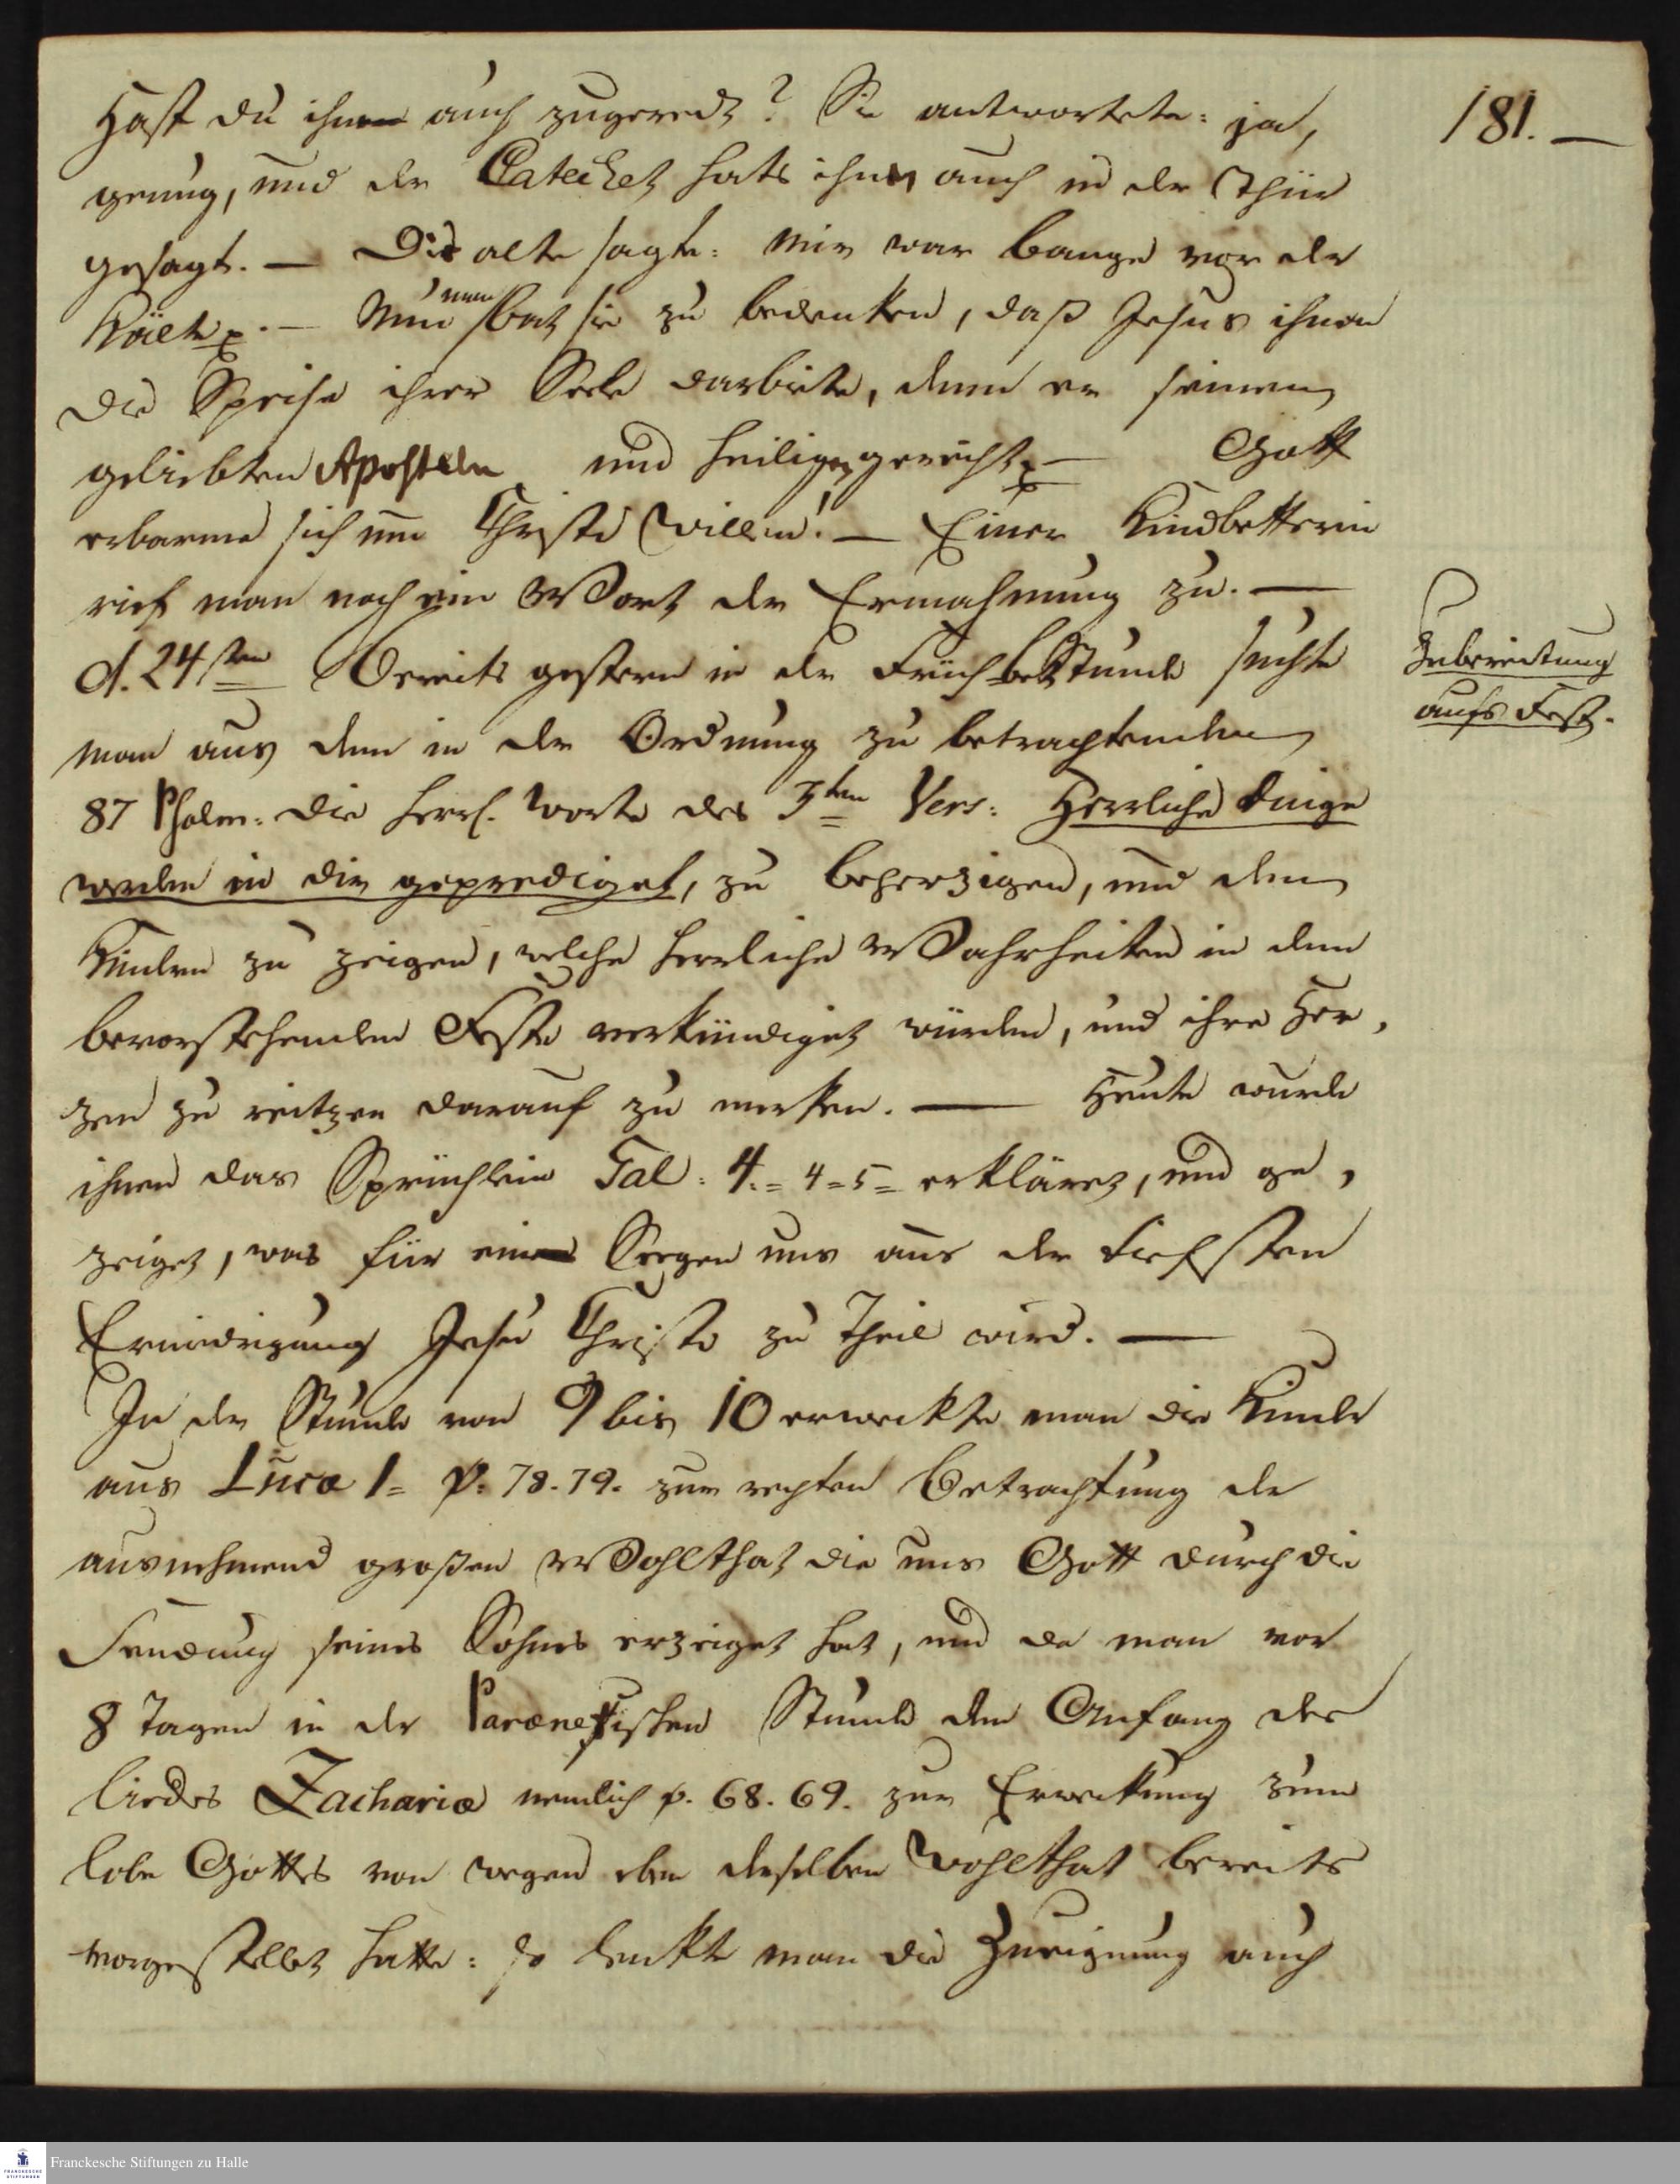 181. —
Hast du ihm auch zugeredt? Sie antwortete: ja,
genug, und der Catechet hats ihm auch in der Thür
gesagt. — Die alte sagte: mir war bange vor der
Kälte p. — Nun bat man sie zu bedenken, daß Jesus ihnen
die Speise ihrer Seele darbiete, denn er seinen
geliebten Aposteln und heiligen gereicht p — Gott
erbarme sich um Christi willen! — Einer Kindbetterin
rief man noch ein Wort der Ermahnung zu. —
Zubereitung
aufs Fest.
d. 24sten Bereits gestern in der Frühbetstunde suchte
man aus dem in der Ordnung zu betrachtenden
87 Psalm: die herrl. Worte des 3ten Vers: Herrliche Dinge
werden in dir geprediget, zu beherzigen, und den
Kindern zu zeigen, welche herrliche Wahrheiten in dem
bevorstehenden Feste verkündiget würden, und ihre Her,
zen zu reitzen darauf zu merken. — Heute wurde
ihnen das Sprüchlein Gal: 4.= 4=5= erkläret, und ge,
zeiget, was für ein Seegen uns aus der tiefsten
Erniedrigung Jesu Christi zu Theil wird. —
In der Stunde von 9 bis 10 erweckte man die Kinder
aus Lucæ 1= v. 78. 79. zur rechten Betrachtung der
ausnehmend großen Wohlthat die uns Gott durch die
Sendung seines Sohnes erzeiget hat, und da man vor
8 Tagen in der Parænetischen Stunde den Anfang des
Liedes Zachariæ nemlich v. 68. 69. zur Erweckung zum
Lobe Gottes von wegen eben derselben Wohlthat bereits
vorgestellet hatte: so lenkte man die Zueignung auch
Franckesche Stiftungen zu Halle